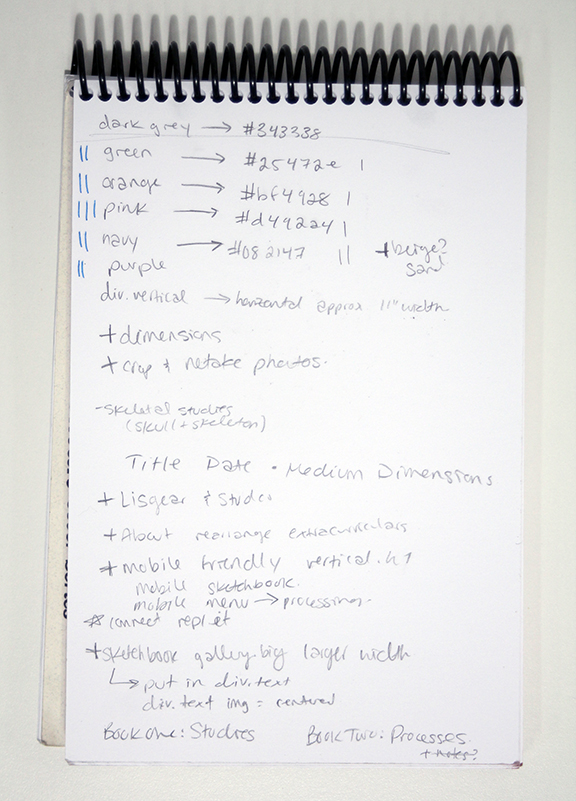 dark grey → #343338
|| green → #25472e |
|| orange → #bf4928 |
||| pink → #d49224 |
|| navy → #082147 || + beige?
sand
|| purple
div.vertical → horizontal approx 11" width
+ dimensions
+ crop & retake photos.
- skeletal studies
(skull + skeleton)
Title Date • Medium Dimensions
+ Lisgar & Studio
+ About rearrange extracurriculars
+ mobile friendly vertical.h1
mobile sketchbook.
mobile menu → processing.
* connect repl.it
+ sketchbook gallery.big larger width
↳ put in div.text
div.text img = centered
Book One: Studies Book Two: Processes.
+ notes?